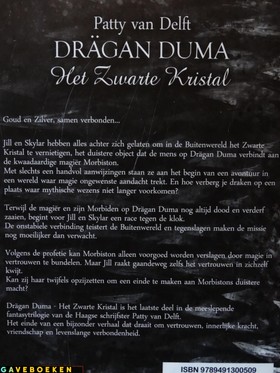 Patty van Delft
DRÄGAN DUMA
Het Zwarte Kristal
Goud en Zilver, samen verbonden...
Jill en Skylar hebben alles achter zich gelaten om in de Buitenwereld het Zwarte
Kristal te vernietigen, het duistere object dat de mens op Drägan Duma verbindt aan
de kwaadaardige magiër Morbiston.
Met slechts een handvol aanwijzingen staan ze aan het begin van een avontuur in
een wereld waar magie ongewenste aandacht trekt. En hoe verberg je draken op een
plaats waar mythische wezens niet langer voorkomen?
Terwijl de magiër en zijn Morbiden op Drägan Duma nog altijd dood en verderf
zaaien, begint voor Jill en Skylar een race tegen de klok.
De onstabiele verbinding teistert de Buitenwereld en tegenslagen maken de missie
nog moeilijker dan verwacht.
Volgens de profetie kan Morbiston alleen voorgoed worden verslagen door magie en
vertrouwen te bundelen. Maar Jill raakt gaandeweg zelfs het vertrouwen in zichzelf
kwijt.
Kan zij haar twijfels opzijzetten om een einde te maken aan Morbistons duistere
macht?
Drägan Duma - Het Zwarte Kristal is het laatste deel in de meeslepende
fantasytrilogie van de Haagse schrijfster Patty van Delft.
Het einde van een bijzonder verhaal dat draait om vertrouwen, innerlijke kracht,
vriendschap en levenslange verbondenheid.
ISBN 9789491300509
GAVEBOEKEN